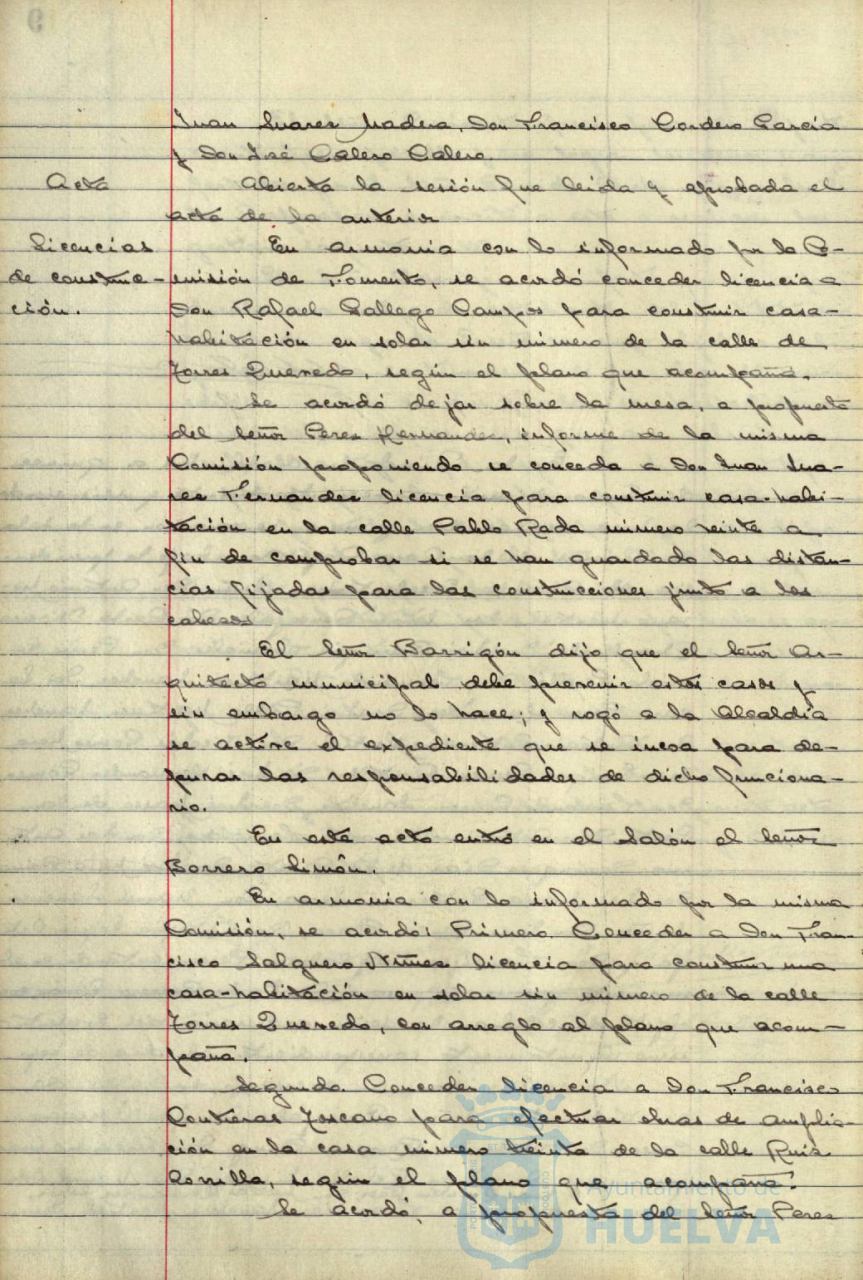 Juan Suarez Madera, Don Francisco Cordero García
y Don José Calero Calero.
Acta
Abierta la sesión fue leida y aprobada el
acta de la anterior
Licencias
de construc-
ción.
En armonia con lo informado por la Co-
misión de Fomento, se acordó conceder licencia a
Don Rafael Gallego Campos para construir casa-
habitación en solar sin número de la calle de
Torres Quevedo, según el plano que acompaña.
Se acordó dejar sobre la mesa, a propuesta
del Señor Perez Hernandez, informe de la misma
Comisión proponiendo se conceda a Don Juan Sua-
rez Fernandez licencia para construir casa-habi-
tación en la calle Pablo Rada número veinte a
fin de comprobar si se han guardado las distan-
cias fijadas para las construcciones junto a los
cabezos
El Señor Barrigón dijo que el Señor Ar-
quitecto municipal debe prevenir estos casos y
sin embargo no lo hace; y rogó a la Alcaldía
se active el expediente que se incoa para de-
purar las responsabilidades de dicho funciona-
rio.
En este acto entró en el Salón el Señor
Borrero Simón.
En armonia con lo informado por la misma
Comisión, se acordó: Primero. Conceder a Don Fran-
cisco Salguero Núñez licencia para construir una
casa-habitación en solar sin número de la calle
Torres Quevedo, con arreglo al plano que acom-
paña.
Segundo. Conceder licencia a Don Francisco
Contreras Toscano para efectuar obras de amplia-
ción en la casa número treinta de la calle Ruiz
Zorrilla, según el plano que acompaña.
Se acordó, a propuesta del Señor Perez
Ayuntamiento de
HUELVA